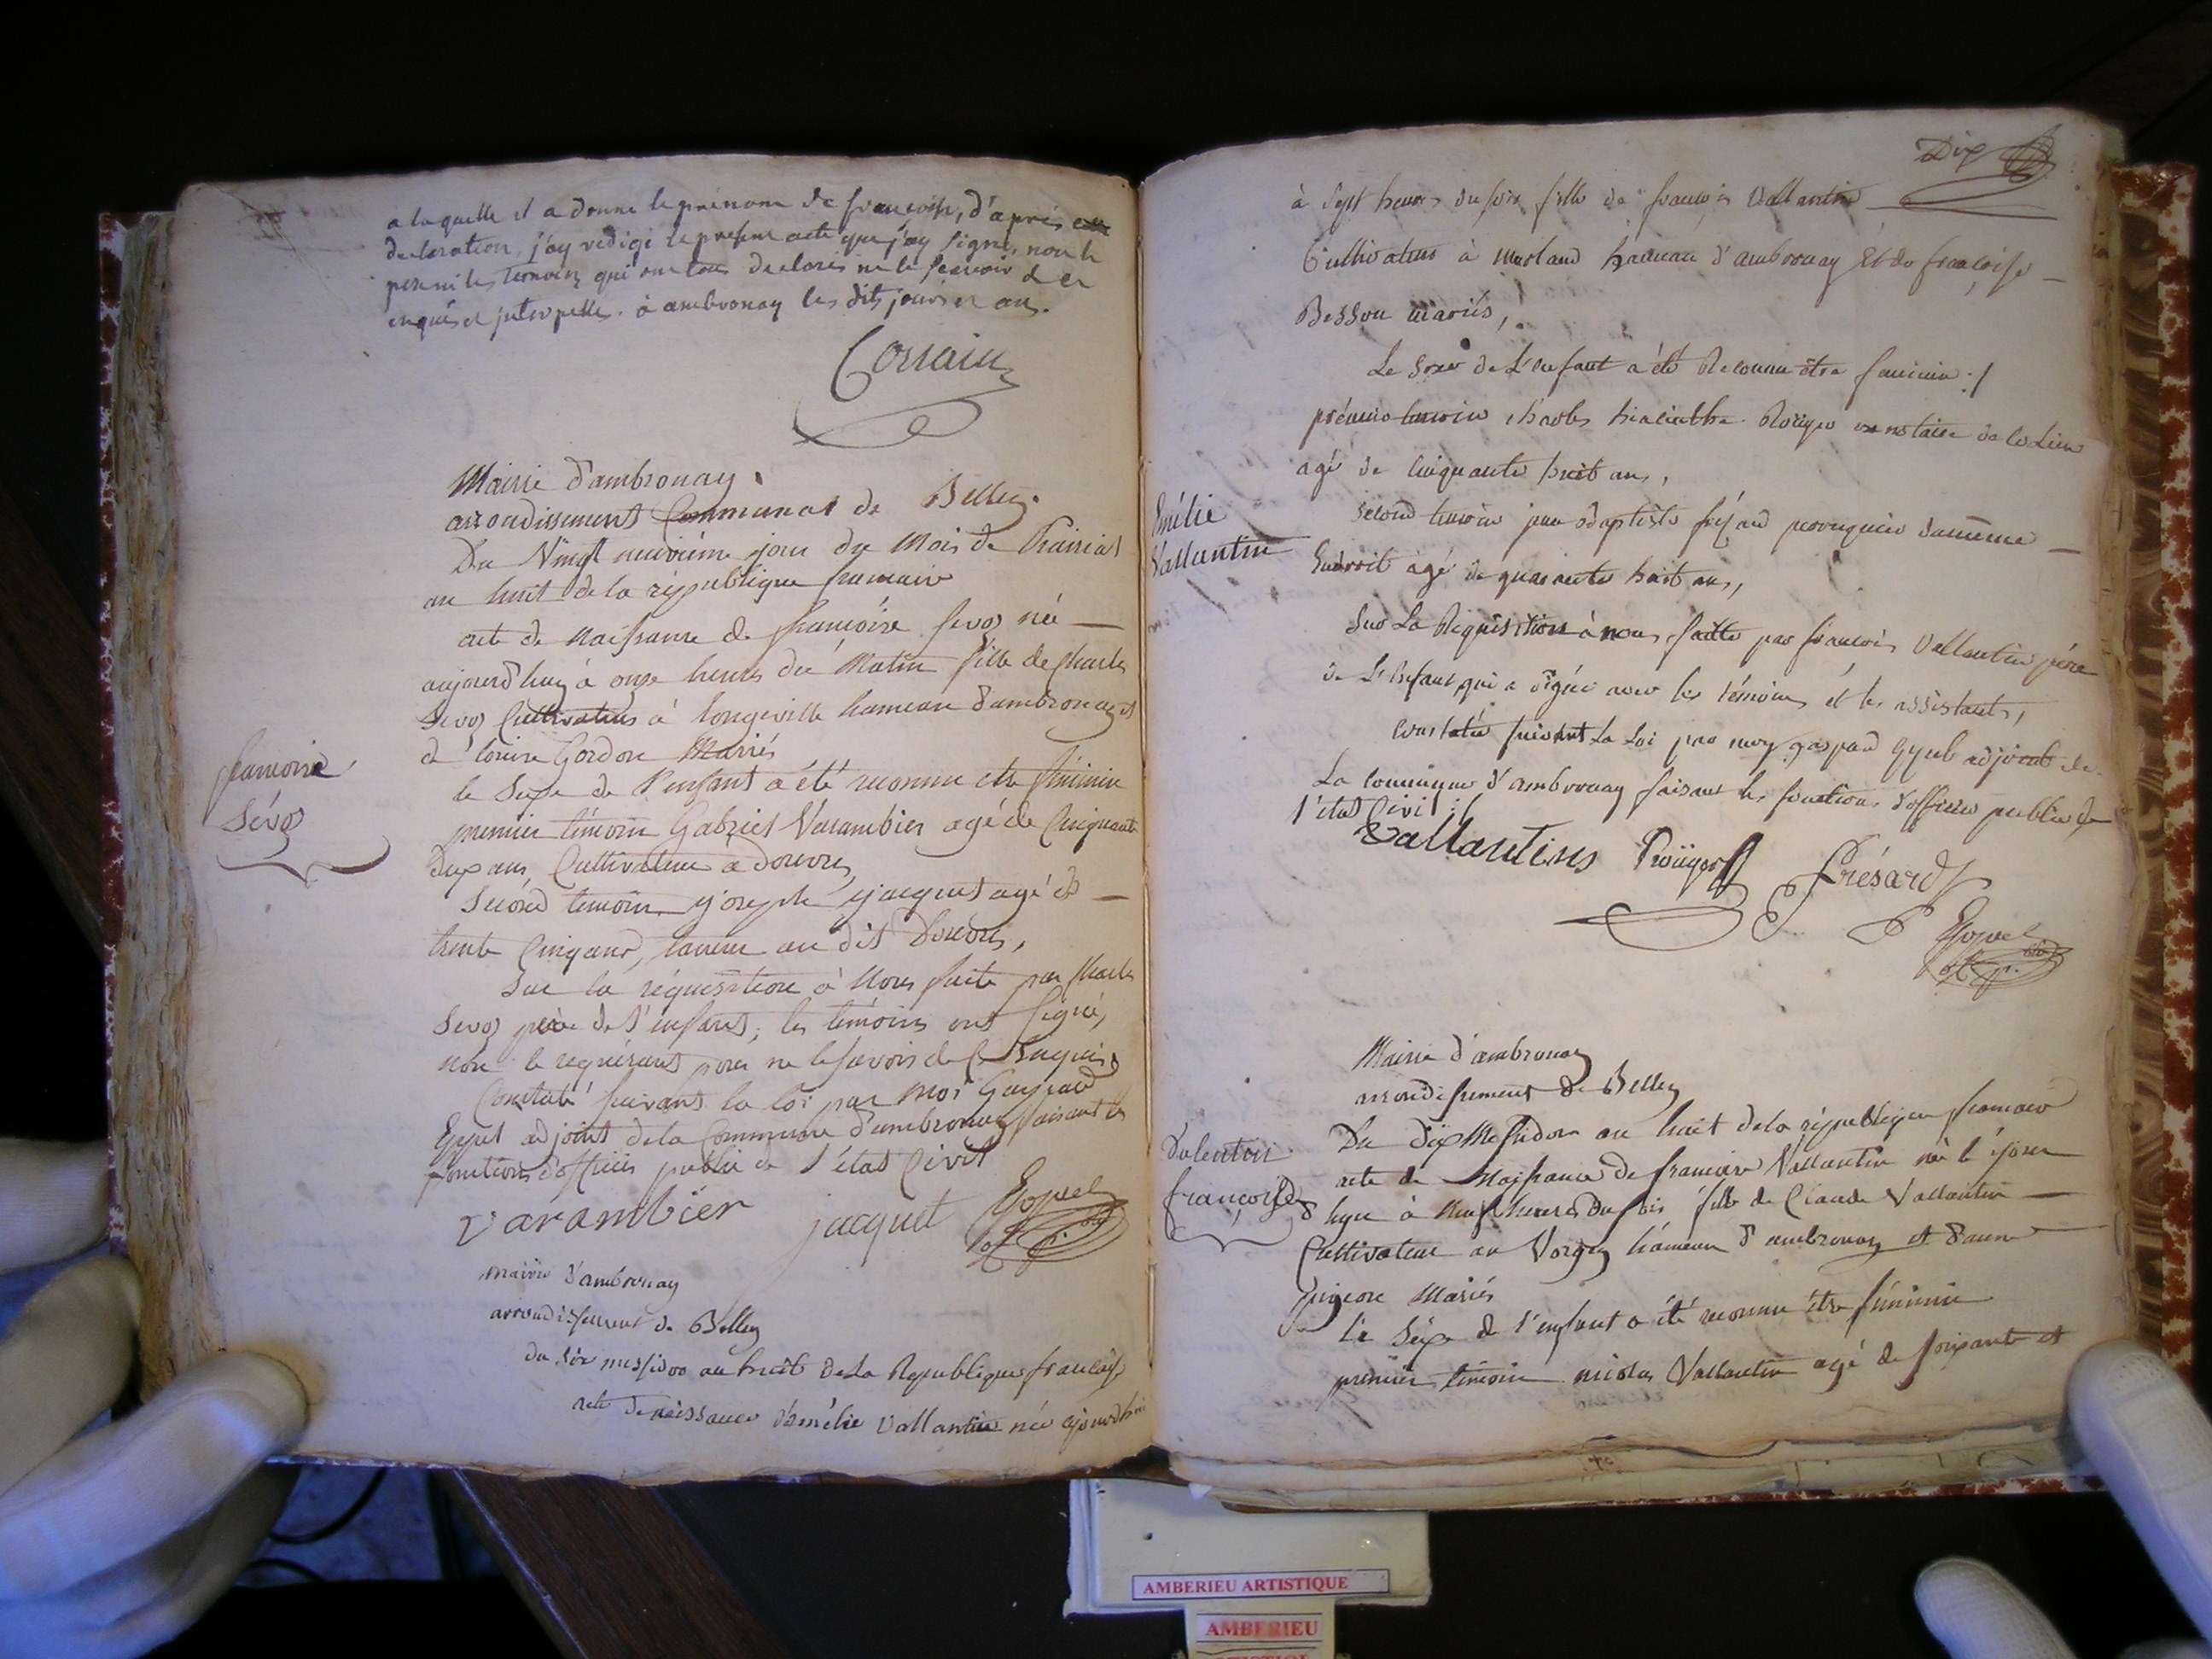 a laquelle il a donné le prénom de francoise, d'après
declaration, j'ay redigé le présent acte que j'ay signé, non le
pere ni les temoins qui ont tous declarés ne le scavoir de ce
enquis et interpellés. à ambronay les dits jours et an.
Mairie d'ambronay.
arrondissement Communal de Belley.
Du Vingt neuvième jour du Mois de Prairial
an huit de la république francaise
acte de Naissance de francoise Sevoz née
aujourd'huy à onze heures du Matin fille de Charles
Sevoz Cultivateur à longeville hameau d'ambronay et
Gordon Mariés
le Sexe de l'enfant a été reconnu etre féminin
francoise
Sévoz
premier témoin Gabriel Varambier agé de Cinquante
deux ans, Cultivateur à Douvres,
Second temoin joseph jacquet agé de
trente Cinq ans, au dit Douvres,
Sur la réquisition à Nous faite par Charles
Sevoz père de l'enfant; les témoins ont signé,
non le requérant pour ne le savoir de ce Enquis
Constaté suivant la loi par Moi Gaspard
Eyuel adjoint de la Commune d'ambronay faisant les
fonctions d'officier public de l'état Civil
Varambier jacquet
mairie d'ambronay
arrondissement de Belley
du six messidor an huit de La Republique francaise
acte de naissance d'émélie Vallantin née ajourdhui
Dix
à sept heures du soir fille de francois Vallantin
Cultivateur à hameau d'ambronay Et de francoise
Besson mariés,
Le Sexe de L'enfant a été Reconnu être feminin
prémier temoin charles hiacinthe Roüyer notaire de ce Lieu
agé de Cinquante huit ans,
Emélie
Vallantin
Second temoin jean Baptiste frésard perruquier du même
Endroit agé de quarante huit ans,
Sur La Réquisition à nous faitte par francois Vallantin père
de L'Enfant qui a signé avec les témoins et les assistants,
Constaté suivant La Loi par moy gaspard Eyuel adjoint de
La commune d'ambronay faisant les fonctions d'officier public de
l'état Civil
Vallantin Roüyer frésard
Mairie d'ambronay
arrondissement de Belley
Du Dix Messidor an huit de la république francaise
Valentin
francoise
acte de Naissance de francoise Vallantin née le jour
hyer à Neuf heures du soir fille de Claude Vallantin
Cultivateur au Vorgey hameau d'ambronay et d'anne
pigeon Mariés
Le Séxe de l'enfant a été reconnu être féminin
premier témoin nicolas Vallantin agé de soixante et
AMBERIEU ARTISTIQUE
AMBERIEU